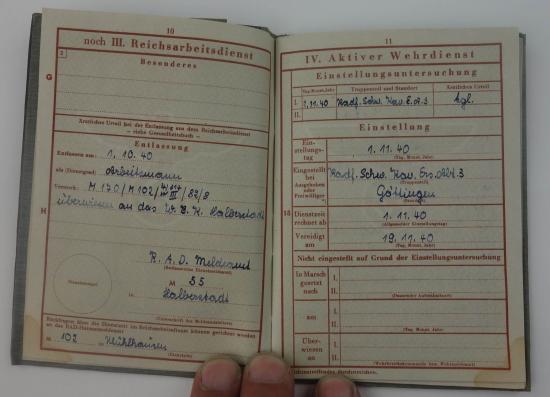 10
noch III. Reichsarbeitsdienst
2
Besonderes
G
Ärztliches Urteil bei der Entlassung aus dem Reichsarbeitsdienst
– siehe Gesundheitsbuch –
Entlassung
Entlassen am: 1. 10. 40
als (Dienstgrad) Arbeitsmann
Vermerk: M 170 / M 102 / 82/8
H
überwiesen an das W. B. K. Halberstadt
R. A. D. Meldeamt
M 55
in Halberstadt
(Dienststempel)
(Unterschrift des Meldeamtsleiters)
Rückfragen über die Dienstzeit im Reichsarbeitsdienst können gerichtet werden
an das RAD-Hauptmeldeamt
M 102 in Mühlhausen
11
IV. Aktiver Wehrdienst
Einstellungsuntersuchung
Tag, Monat, Jahr
Truppenteil und Standort
Ärztliches Urteil
I. 1.11.40 Radf. Schw. Kav. E. A. 3 tgl.
II.
Einstellung
Einstellungstag
1. 11. 40
(Tag, Monat, Jahr)
Eingestellt bei
Ausgehoben oder Freiwilliger
Radf. Schw. Kav. Ers. Abt. 3
(Truppenteil)
Göttingen
(Standort)
18
Dienstzeit rechnet ab
1. 11. 40
Vereidigt am
19. 11. 40
(Tag, Monat, Jahr)
Nicht eingestellt auf Grund der Einstellungsuntersuchung
In Marsch gesetzt nach
I.
II.
am
I.
II.
(Tag, Monat, Jahr)
Überwiesen an
I.
II.